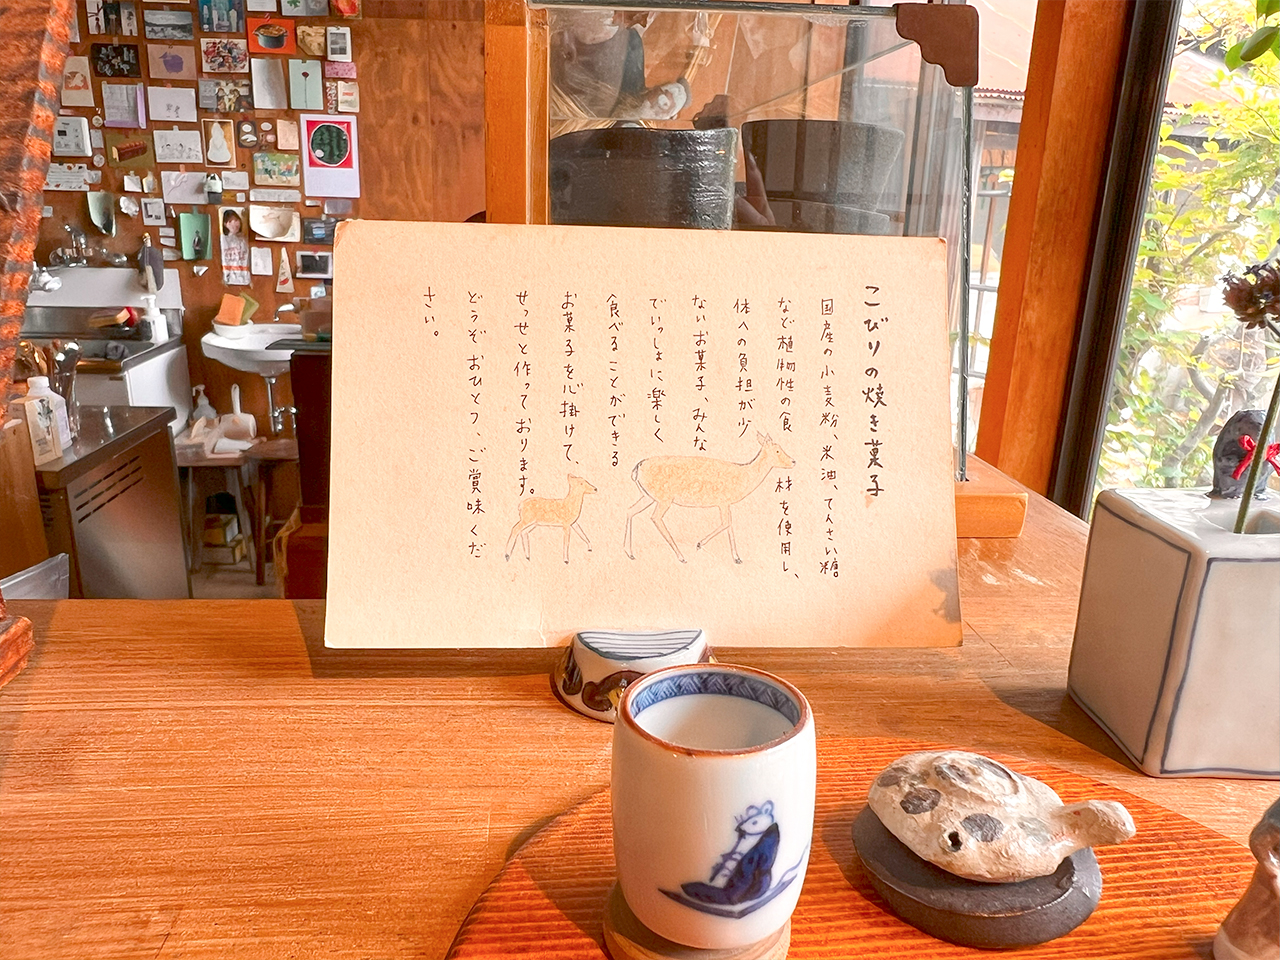 こびりの焼き菓子
国産の小麦粉、米油、てんさい糖
など植物性の食材を使用し、
体への負担が少
ないお菓子、みんな
でいっしょに楽しく
食べることができる
お菓子を心掛けて、
せっせと作っております。
どうぞおひとつ、ご賞味くだ
さい。